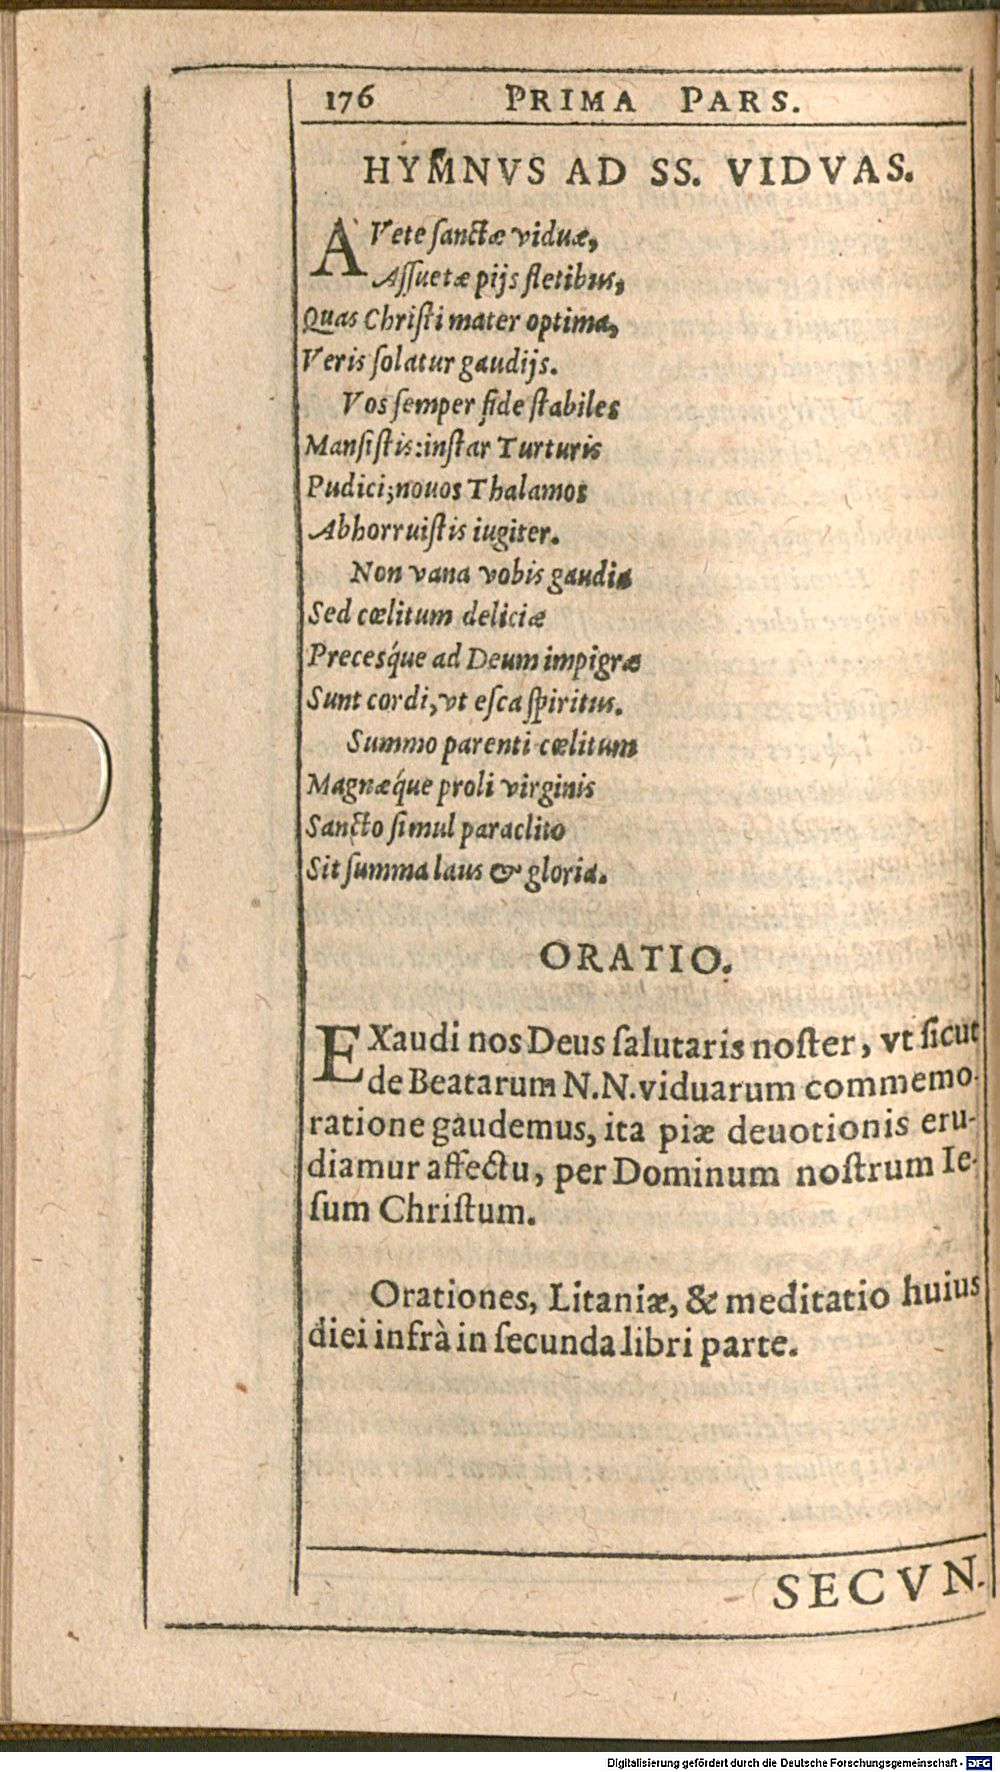 176 PRIMA PARS.
HYMNVS AD SS. VIDVAS.
AVete ſanctæ viduæ,
Aſſuetæ pijs fletibus,
Quas Chriſti mater optima,
Veris ſolatur gaudijs.
Vos ſemper fide ſtabiles
Manſiſtis: inſtar Turturis
Pudici; nouos Thalamos
Abhorruiſtis iugiter.
Non vana vobis gaudia
Sed cœlitum deliciæ
Precesq́ue ad Deum impigræ
Sunt cordi, vt eſca ſpiritus.
Summo parenti cœlitum
Magnæq́ue proli virginis
Sancto ſimul paraclito
Sit ſumma laus & gloria.
ORATIO.
EXaudi nos Deus ſalutaris noſter, vt ſicut
de Beatarum N.N. viduarum commemo-
ratione gaudemus, ita piæ deuotionis eru-
diamur affectu, per Dominum noſtrum Ie-
ſum Chriſtum.
Orationes, Litaniæ, & meditatio huius
diei infrà in ſecunda libri parte.
SECVN-
Digitalisierung gefördert durch die Deutsche Forschungsgemeinschaft - DFG